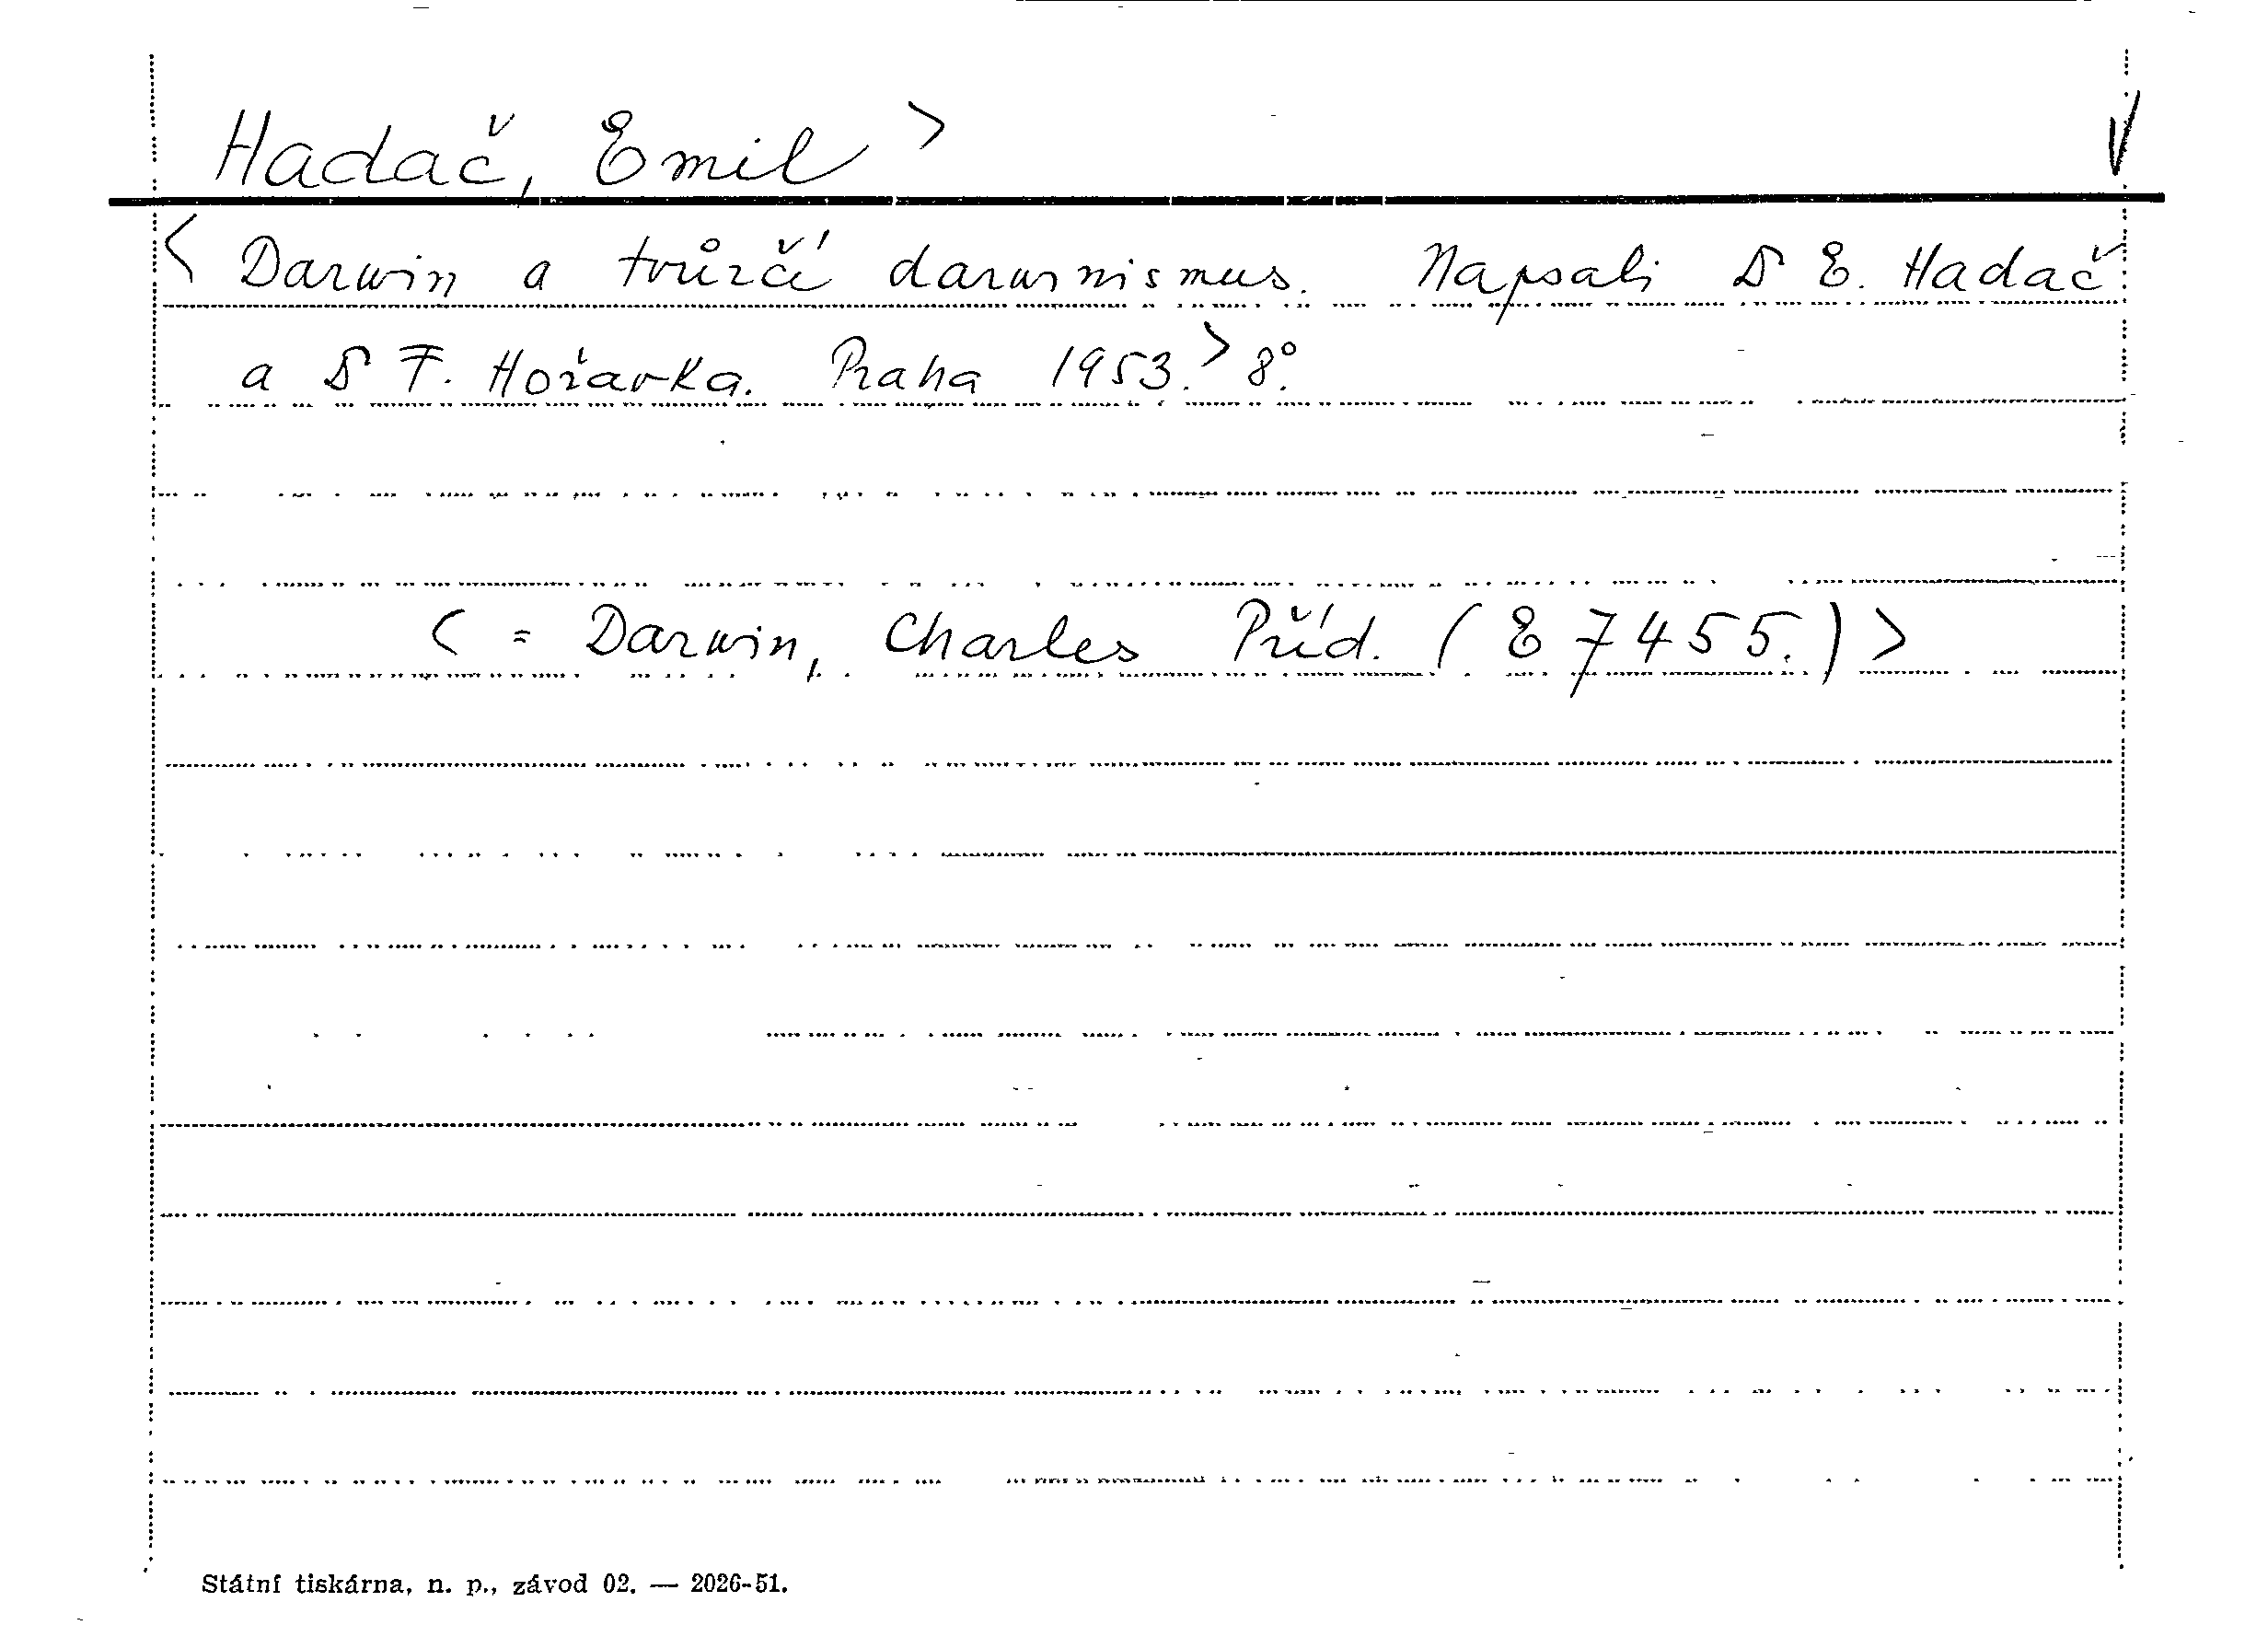 Hadač, Emil >
< Darwin a tvůrčí darwinismus. Napsali Dr E. Hadač
a Dr F. Hořavka. Praha 1953. > 8°.
< = Darwin, Charles Příd. (E 7455.) >
Státní tiskárna, n. p., závod 02. — 2026-51.